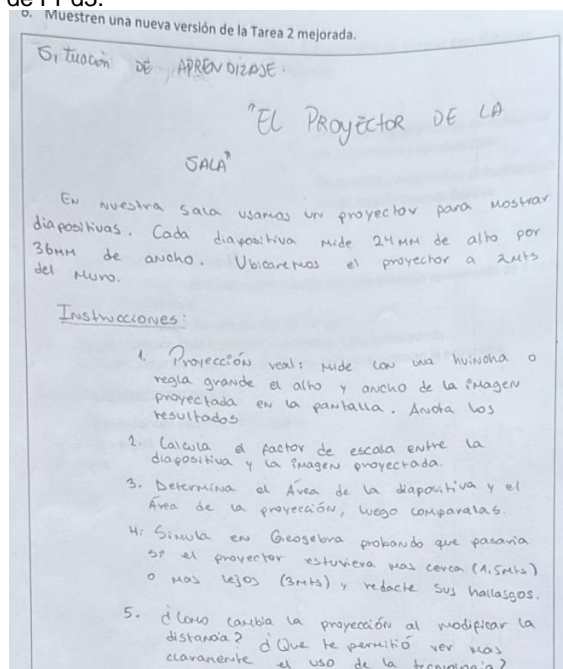 de FPd3.
6. Muestren una nueva versión de la Tarea 2 mejorada.
Situación DE APRENDIZAJE:
"EL PROYECTOR DE LA
SALA"
EN NUESTRA SALA USAMOS UN proyector para mostrar
diapositivas. Cada diapositiva mide 24MM de alto por
36MM de ancho. Ubicaremos el proyector a 2Mts
del muro.
INSTRUCCIONES:
1. Proyección real: Mide con una huincha o
regla grande el alto y ancho de la imagen
proyectada en la pantalla. Anota los
resultados
2. Calcula el factor de escala entre la
diapositiva y la imagen proyectada.
3. Determina el Área de la diapositiva y el
Área de la proyección, luego comparalas.
4: Simula en Geogebra probando que pasaria
si el proyector estuviera mas cerca (1.5Mts)
o mas lejos (3Mts) y redacte sus hallasgos.
5. ¿Como cambia la proyección al modificar la
distancia? ¿Que te permitió ver mas
claramente el uso de la tecnología?